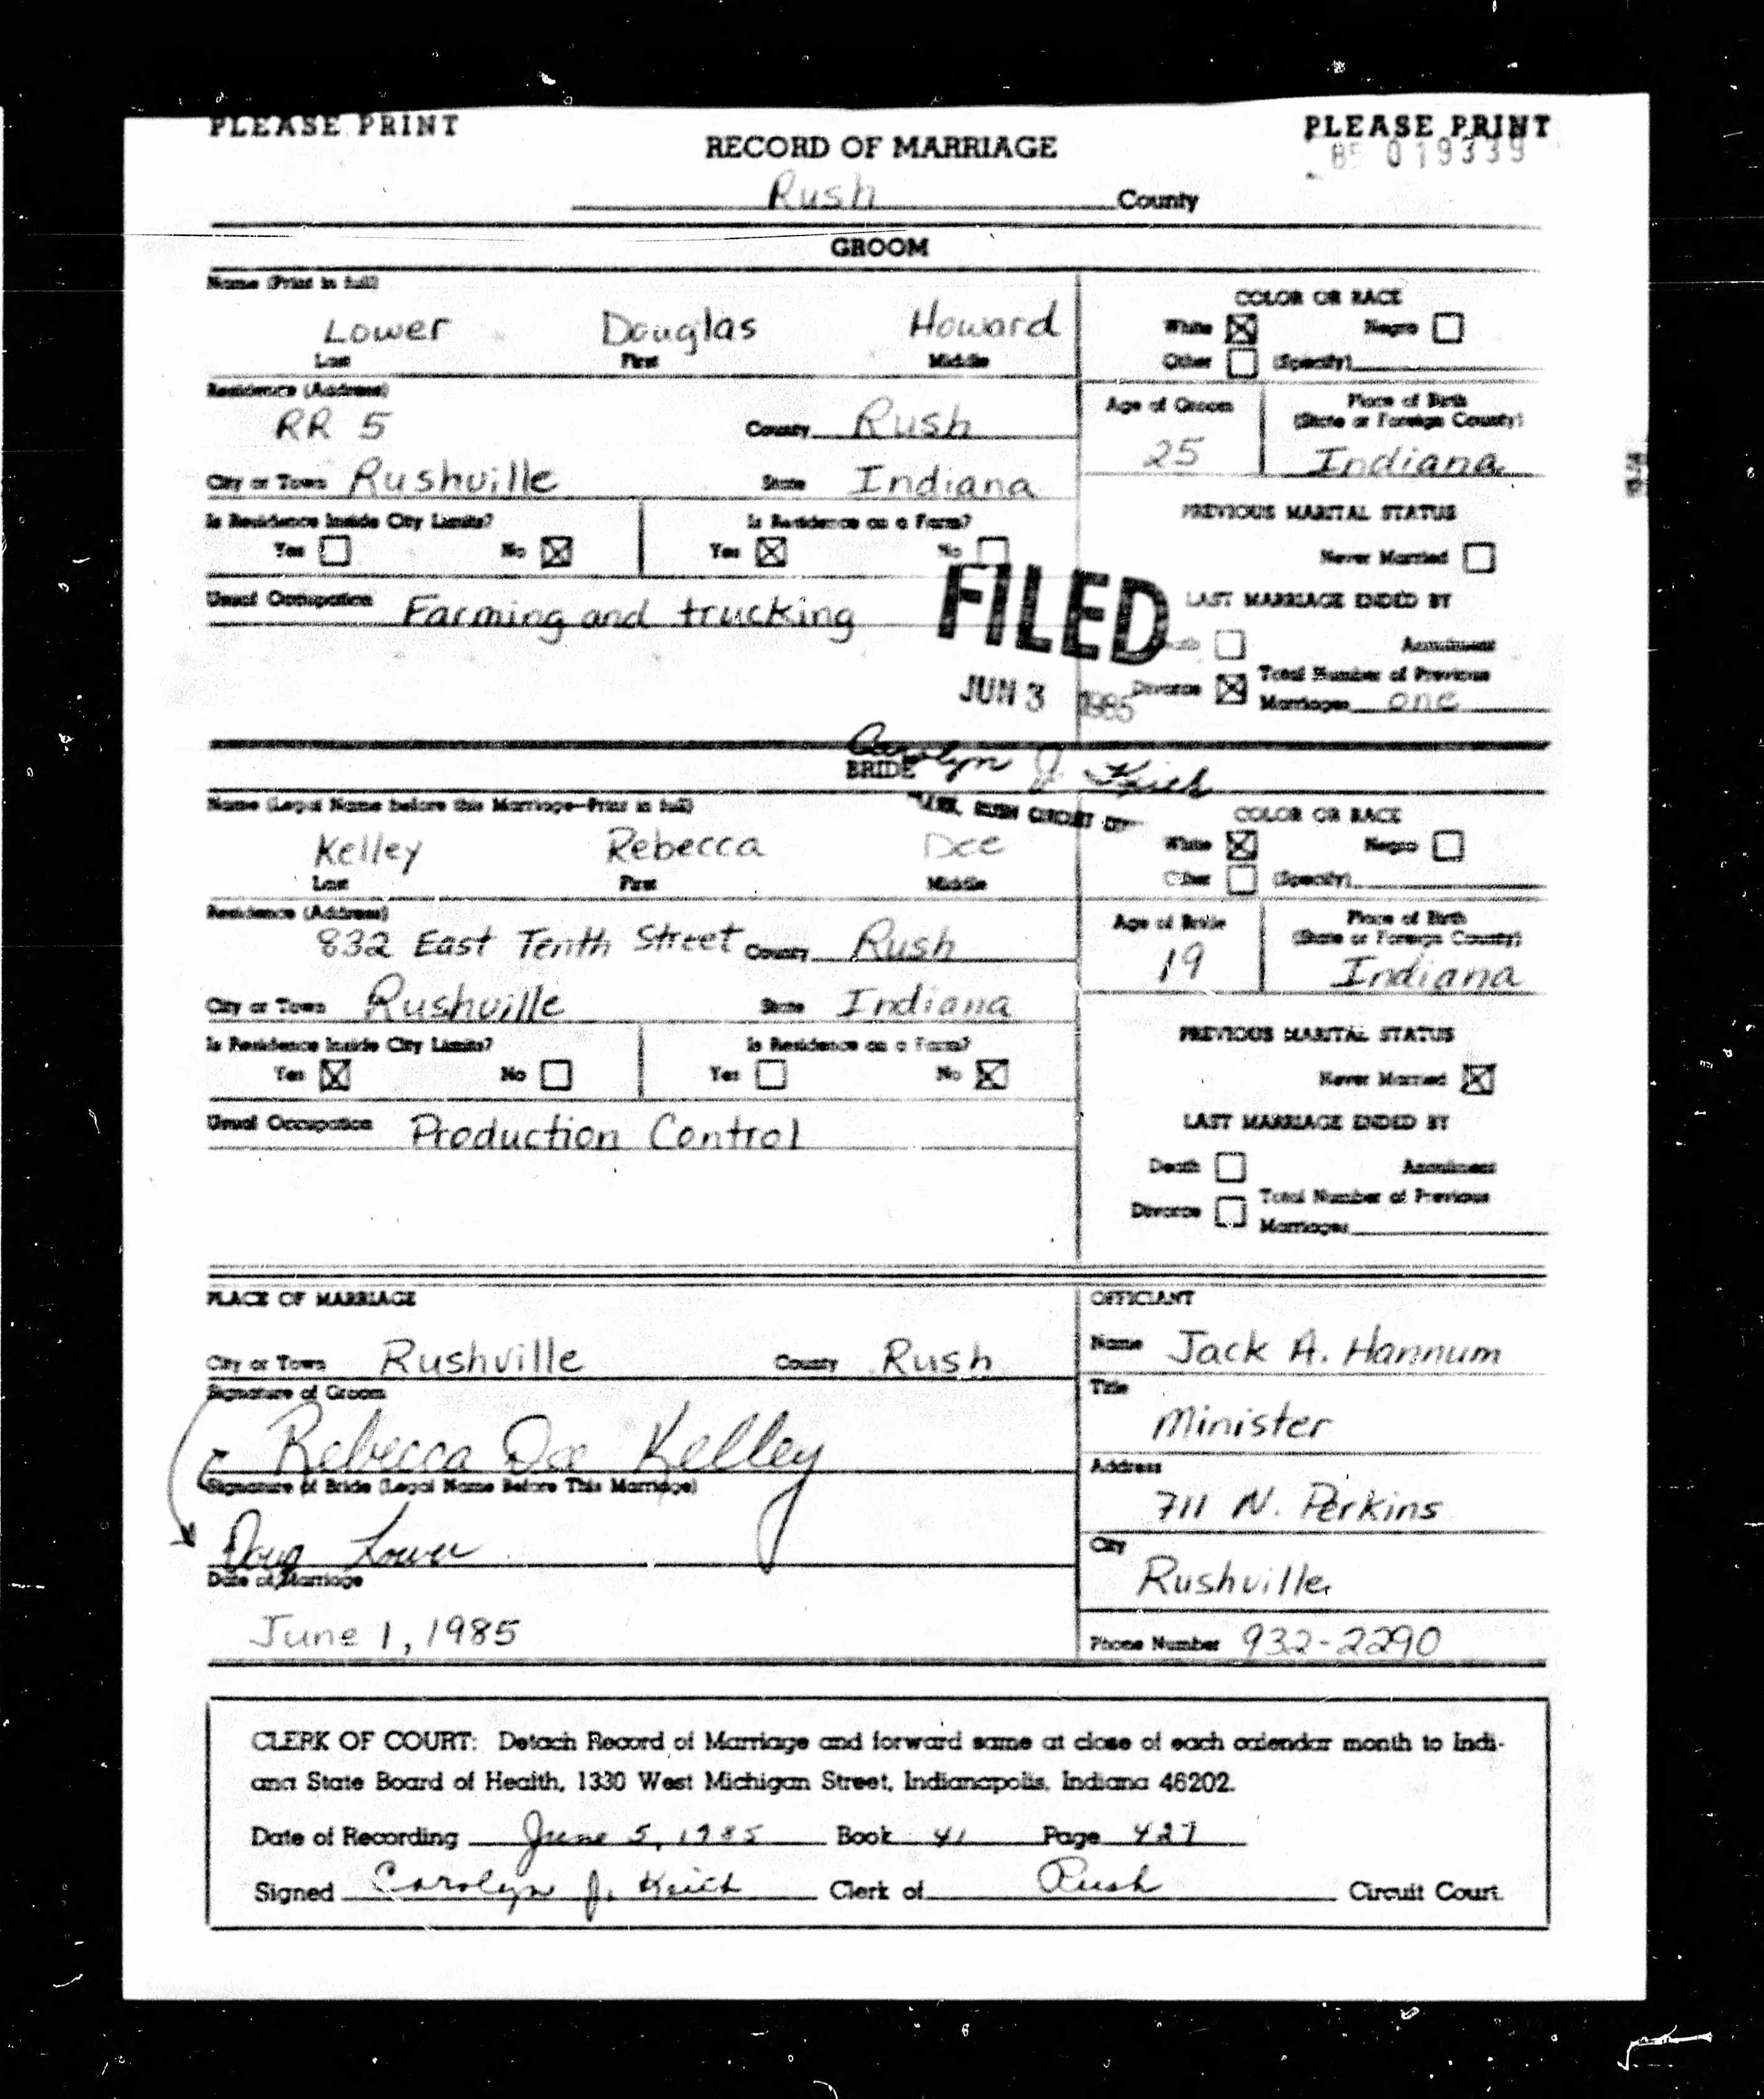 PLEASE PRINT
PLEASE PRINT
RECORD OF MARRIAGE
85 019339
Rush County
GROOM
Name (Print in full)
Lower Douglas Howard
Last First Middle
COLOR OR RACE
White ☒ Negro ☐
Other ☐ (Specify)
Residence (Address)
RR 5 County Rush
City or Town Rushville State Indiana
Age of Groom
25
Place of Birth
(State or Foreign County)
Indiana
Is Residence Inside City Limits?
Yes ☐ No ☒
Is Residence on a Farm?
Yes ☒ No ☐
Usual Occupation Farming and trucking
PREVIOUS MARITAL STATUS
Never Married ☐
LAST MARRIAGE ENDED BY
☐ Annulment
Divorce ☒ Total Number of Previous
Marriages one
FILED
JUN 3 1985
Carolyn J. Keich
CLERK, RUSH CIRCUIT
BRIDE
Name (Legal Name before this Marriage-Print in full)
Kelley Rebecca Dee
Last First Middle
COLOR OR RACE
White ☒ Negro ☐
Other ☐ (Specify)
Residence (Address)
832 East Tenth Street County Rush
City or Town Rushville State Indiana
Age of Bride
19
Place of Birth
(State or Foreign County)
Indiana
Is Residence Inside City Limits?
Yes ☒ No ☐
Is Residence on a Farm?
Yes ☐ No ☒
Usual Occupation Production Control
PREVIOUS MARITAL STATUS
Never Married ☒
LAST MARRIAGE ENDED BY
Death ☐ Annulment
Divorce ☐ Total Number of Previous
Marriages
PLACE OF MARRIAGE
City or Town Rushville County Rush
Signature of Groom
Rebecca Dee Kelley
Signature of Bride (Legal Name Before This Marriage)
Doug Lower
Date of Marriage
June 1, 1985
OFFICIANT
Name Jack A. Hannum
Title
Minister
Address
711 N. Perkins
City
Rushville
Phone Number 932-2290
CLERK OF COURT: Detach Record of Marriage and forward same at close of each calendar month to Indi-
ana State Board of Health, 1330 West Michigan Street, Indianapolis, Indiana 46202.
Date of Recording June 5, 1985 Book 41 Page 427
Signed Carolyn J. Keich Clerk of Rush Circuit Court.